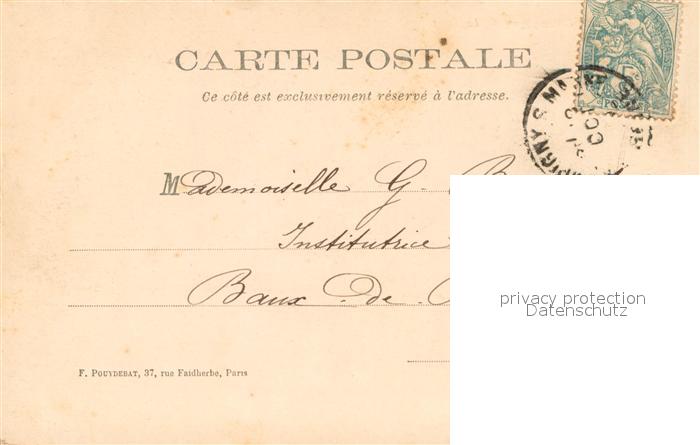 CARTE POSTALE
Ce côté est exclusivement réservé à l'adresse.
Mademoiselle G.
Institutrice
Baux de
F. Pouydebat, 37, rue Faidherbe, Paris
privacy protection
Datenschutz